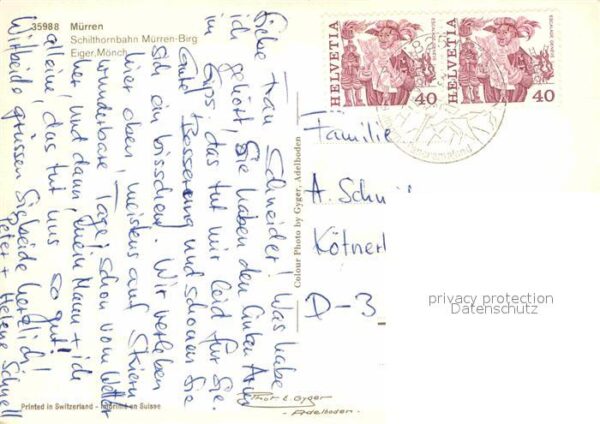 35988 Mürren
Schilthornbahn Mürren-Birg
Eiger, Mönch
Liebe Frau Schneider! Was habe
ich gehört, Sie haben den linken Arm
im Gips, das tut mir leid für Sie.
Gute Besserung und schonen Sie
sich ein bisschen! Wir verleben
hier oben, meistens auf Skiern
wunderbare Tage! Schon vom Wetter
her, und dann, mein Mann + ich
alleine, das tut uns so gut!
Wir beide grüssen Sie beide herzlich!
Peter + Helene Schnell
Colour Photo by Gyger, Adelboden
HELVETIA
40
ESCALADE GENÈVE
HELVETIA
40
ESCALADE GENÈVE
Familie
A. Schn
Kötnerl
D-3
privacy protection
Datenschutz
Printed in Switzerland - Imprimé en Suisse
Photo E. Gyger
Adelboden